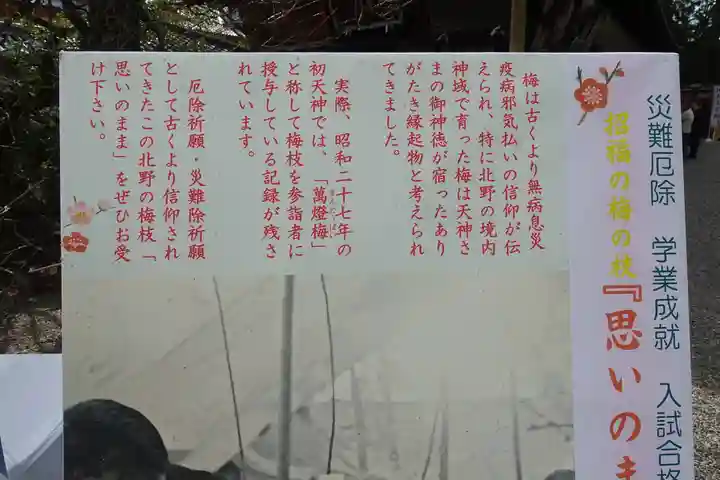 災難厄除　学業成就　入試合格
招福の梅の枝
『思いのま
梅は古くより無病息災
疫病邪気払いの信仰が伝
えられ、特に北野の境内
神域で育った梅は天神さ
まの御神徳が宿ったあり
がたき縁起物と考えられ
てきました。
実際、昭和二十七年の
初天神では、「萬燈梅」
と称して梅枝を参詣者に
授与している記録が残さ
れています。
厄除祈願・災難除祈願
として古くより信仰され
てきたこの北野の梅枝「
思いのまま」をぜひお受
け下さい。